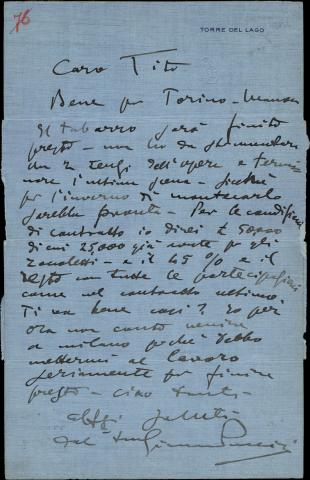 76
TORRE DEL LAGO
Caro Tito
Bene per Torino - Manon
Il tabarro sarà finito
presto - non ho da strumentare
che 2 terzi dell'opera e termi
nare l'ultima scena - sicchè
per l'inverno di montecarlo
sarebbe pronta - Per le condizioni
di contratto io direi £ 50000
di cui 25,000 già avute per gli
zoccoletti - e il 45% e il
resto con tutte le partecipazioni
come nel contratto ultimo
Ti va bene così? Io per
ora non conto venire
a milano poichè debbo
mettermi al lavoro
seriamente per finire
presto - ciao tanti
affti saluti
dal tuo Giacomo Puccini